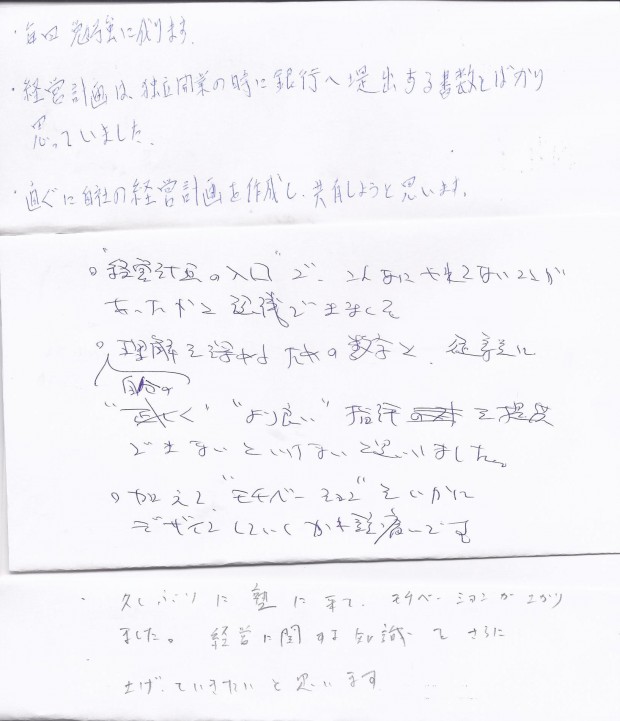 ・毎回 勉強に成ります。
・経営計画は、独立開業の時に銀行へ提出する書類とばかり
思っていました。
・直ぐに自社の経営計画を作成し、共有しようと思います。
。"経営計画の入口"で、こんなにやれてないことが
あったかと認識できました
。理解を深めるための数字と、従業員に
自分の
"より良い" 指標を提度
できないといけないと思いました。
。加えて"モチベーション"をいかに
デザインしていくかも課題です
・久しぶりに塾に来て、モチベーションが上がり
ました。経営に関する知識をさらに
上げていきたいと思います